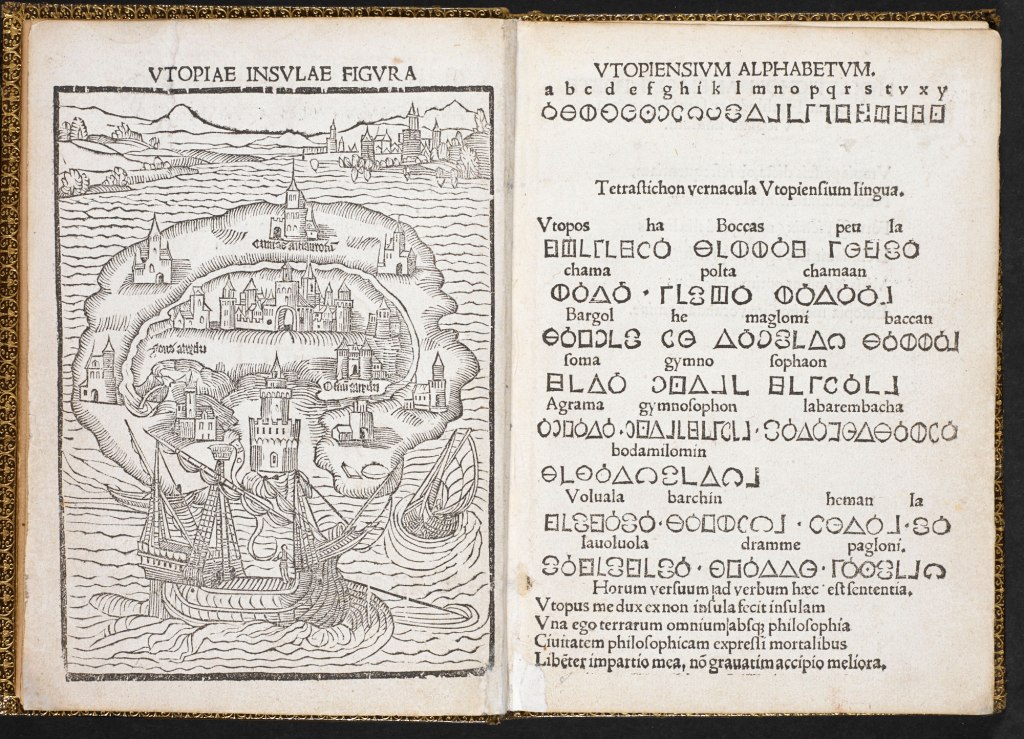 VTOPIAE INSVLAE FIGVRA
VTOPIENSIVM ALPHABETVM.
a b c d e f g h i k l m n o p q r s t v x y
Tetrastichon vernacula Vtopiensium lingua.
Vtopos ha Boccas peu la
chama polta chamaan
Bargol he maglomi baccan
soma gymno sophaon
Agrama gymnosophon labarembacha
bodamilomin
Voluala barchin heman la
lauoluola dramme pagloni.
Horum versuum ad verbum hæc est sententia.
Vtopus me dux ex non insula fecit insulam
Vna ego terrarum omnium absqꝫ philosophia
Ciuitatem philosophicam expressi mortalibus
Libẽter impartio mea, nõ grauatim accipio meliora.